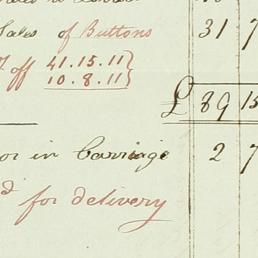 Sales of Buttons 31 7
off 41.15.11
10.8.11
£ 89 15
or in Carriage 2 7
for delivery